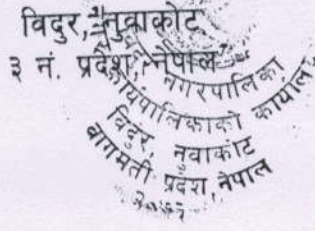 विदुर, नुवाकोट
३ नं. प्रदेश, नेपाल
नगरपालिका
कार्यपालिकाको कार्यालय
विदुर, नुवाकोट
बागमती प्रदेश, नेपाल